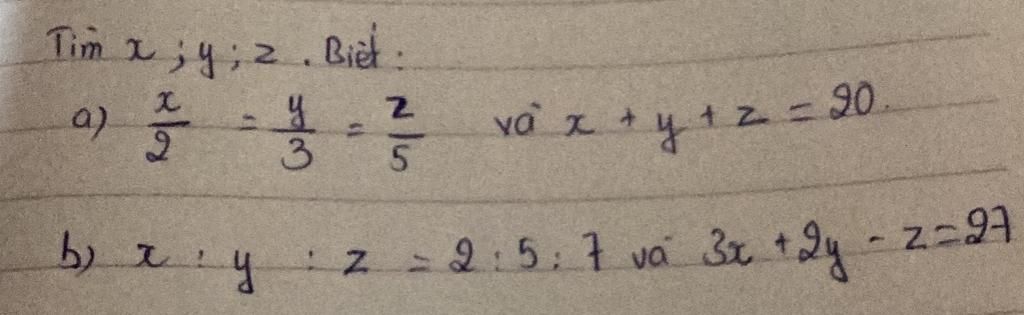 Tìm x ; y ; z . Biết :
a) x/2 = y/3 = z/5 và x + y + z = 20.
b) x : y : z = 2 : 5 : 7 và 3x + 2y - z = 27